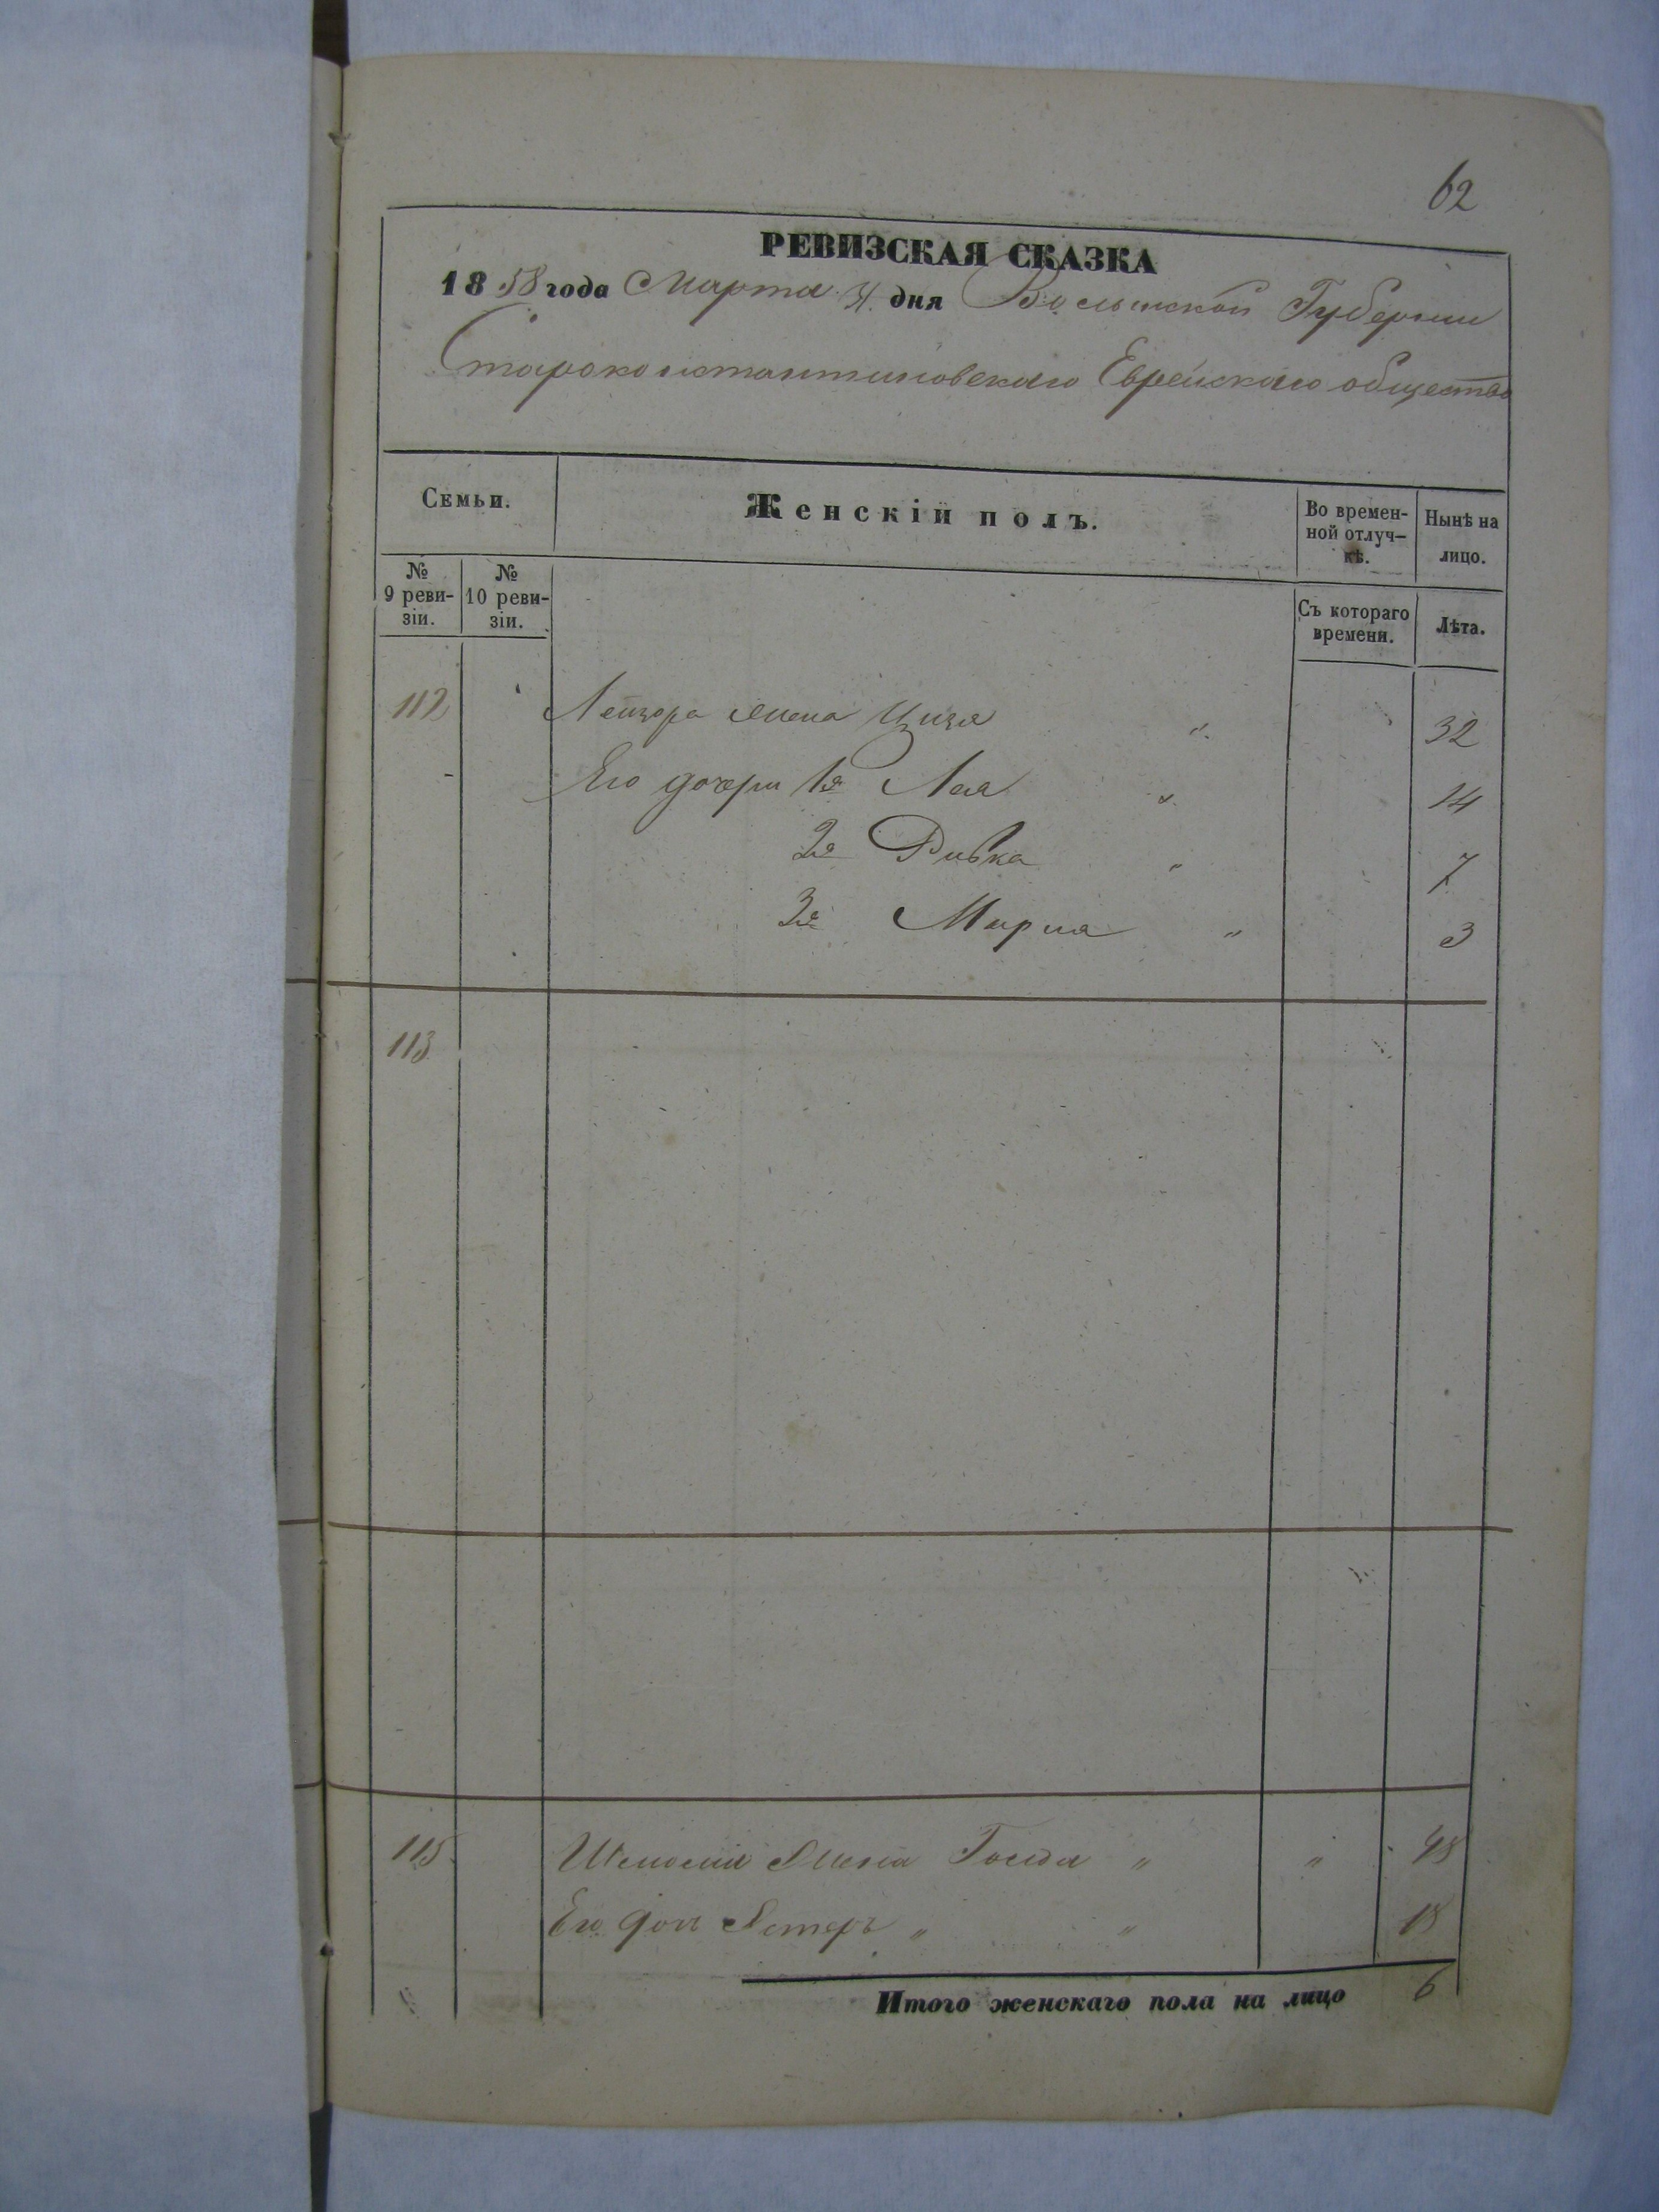 62
РЕВИЗСКАЯ СКАЗКА
1858 года Марта 31 дня Волынской Губернии
Староконстантиновскаго Еврейскаго общества
Семьи.
Женскій полъ.
Во времен-
ной отлуч-
кѣ.
Нынѣ на
лицо.
№
9 реви-
зіи.
№
10 реви-
зіи.
Съ котораго
времени.
Лѣта.
112 Лейзора жена Цизя " 32
Его дочери 1я Лея " 14
2я Ривка " 7
3я Мирия " 3
113
115 жена Голда " " 48
Его доч Эстеръ " " 18
Итого женскаго пола на лицо 6